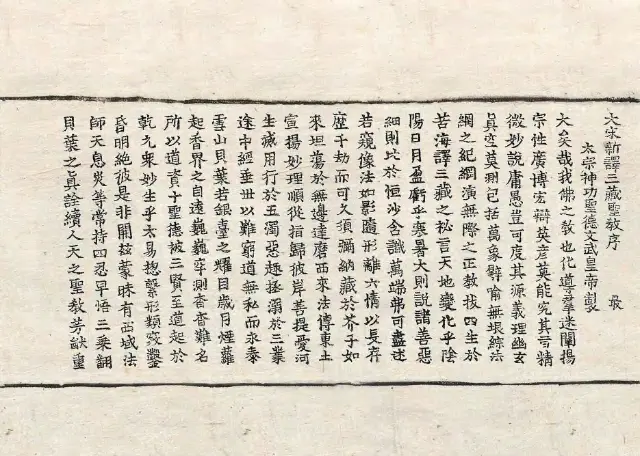 大宋新譯三藏聖教序 最
太宗神功聖德文武皇帝製
大矣哉我佛之教也化導群迷闡揚
宗性廣博宏辯英彥莫能究其旨精
微妙說庸愚豈可度其源義理幽玄
真空莫測包括萬象譬喻無垠綜法
網之紀綱演無際之正教拔四生於
苦海譯三藏之秘言天地變化乎陰
陽日月盈虧乎寒暑大則說諸善惡
細則比於恒沙含識萬端弗可盡述
若窺像法如影隨形離六情以長存
歷千劫而可久須彌納藏於芥子如
來坦蕩於無邊達磨西來法傳東土
宣揚妙理順從指歸彼岸菩提愛河
生滅用行於五濁惡趣拯溺於三業
途中經垂世以難窮道無私而永泰
雪山貝葉若銀臺之耀目歲月煙蘿
起香界之自遠巍巍罕測杳杳難名
所以道資十聖德被三賢至道起於
乾元衆妙生乎太易揔繫形類竅鑿
昏明絕彼是非開茲蒙昧有西域法
師天息災等常持四忍早悟三乘翻
貝葉之真詮續人天之聖教芳猷重